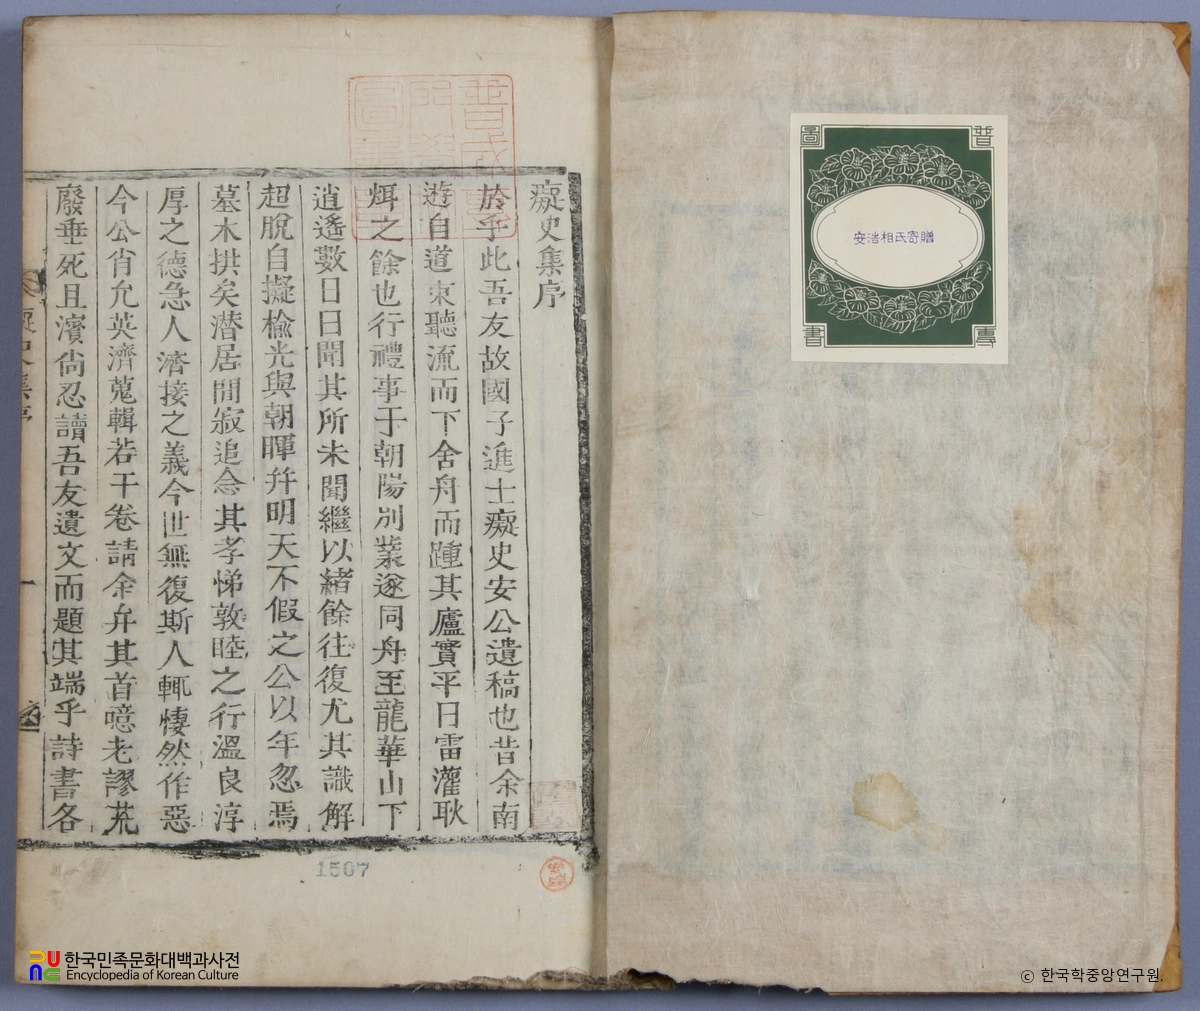 癡史集序
於乎此吾友故國子進士癡史安公遺稿也昔余南
遊自道東聽流而下舍舟而踵其廬實平日雷灌耿
煇之餘也行禮事于朝陽別業遂同舟至龍華山下
逍遙數日日聞其所未聞繼以緖餘往復尤其識解
超脫自擬楡光與朝暉幷明天不假之公以年忽焉
墓木拱矣潜居閒寂追念其孝悌敦睦之行溫良淳
厚之德急人濟接之義今世無復斯人輒悽然作惡
今公肖允英濟蒐輯若干卷請余弁其首噫老謬荒
廢垂死且濱尙忍讀吾友遺文而題其端乎詩書各
癡史集序
一
普成專門學校圖書
1567
圖 普
安潽相氏寄贈
書 專
한국민족문화대백과사전
Encyclopedia of Korean Culture
ⓒ 한국학중앙연구원.